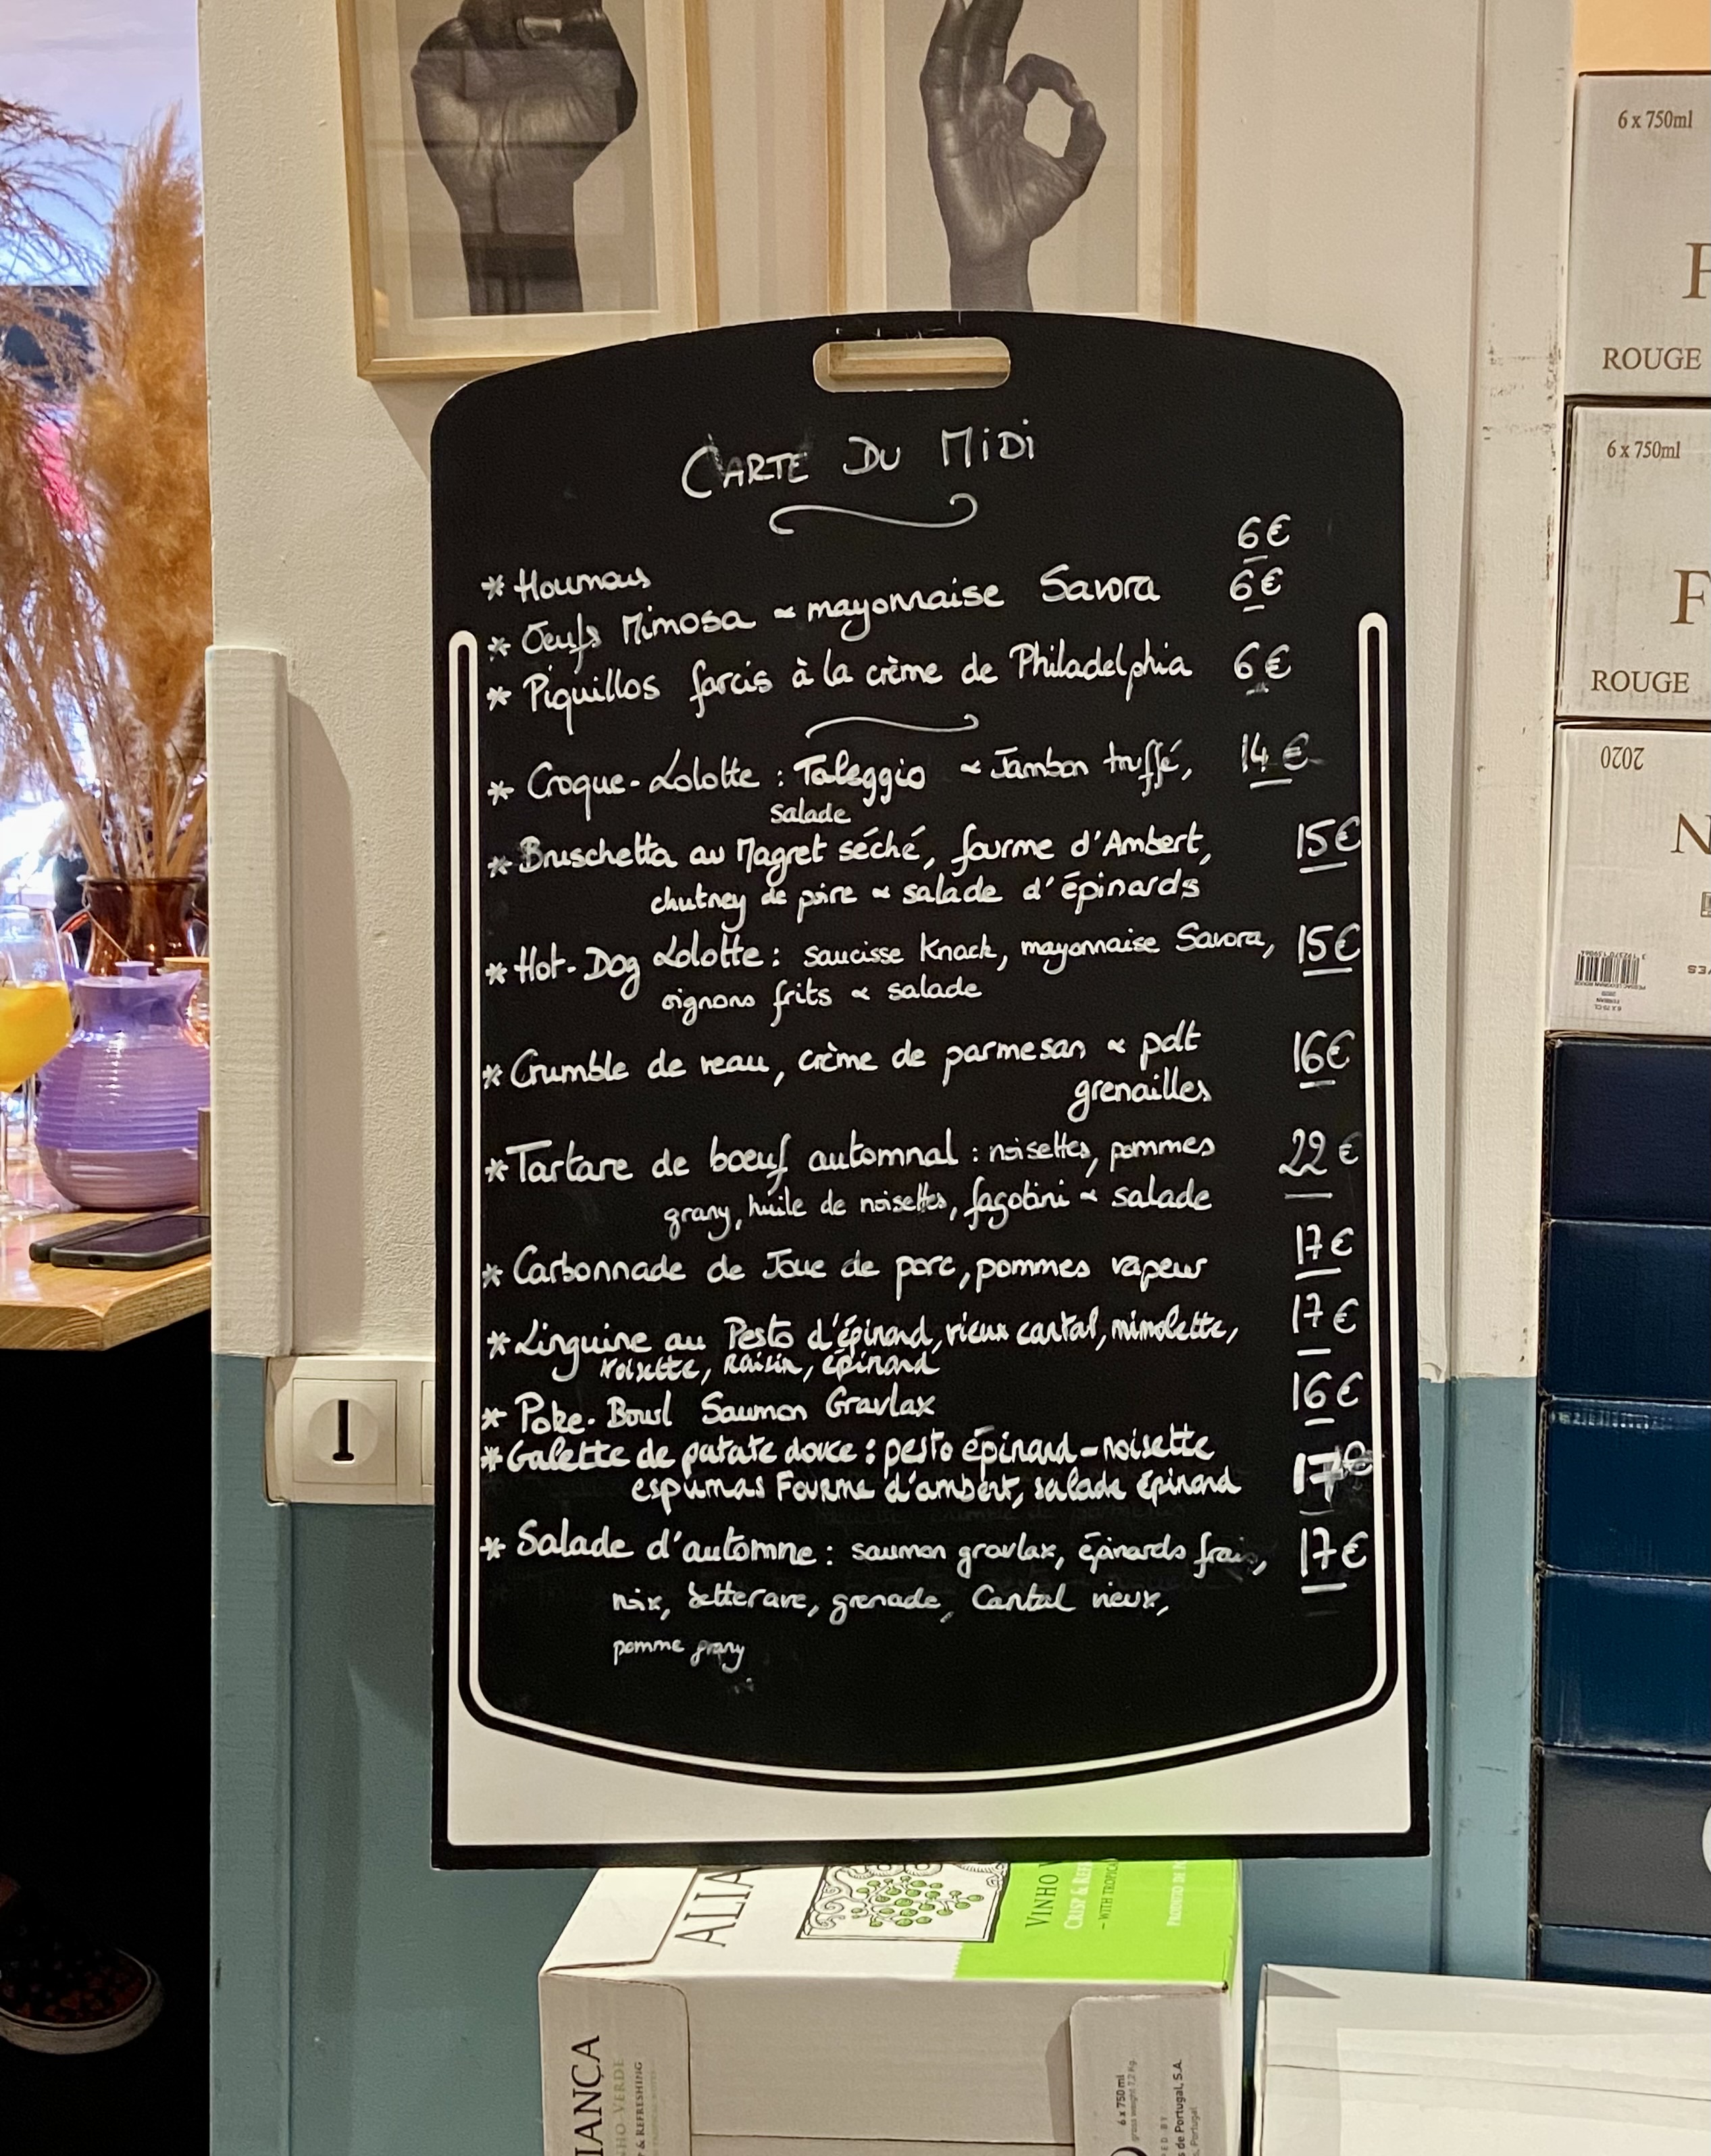 CARTE DU MIDI
* Houmous 6€
* Œufs Mimosa & mayonnaise Savora 6€
* Piquillos farcis à la crème de Philadelphia 6€
* Croque-Lolotte : Taleggio & Jambon truffé, 14€
salade
* Bruschetta au Magret séché, fourme d'Ambert, 15€
chutney de poire & salade d'épinards
* Hot-Dog Lolotte : saucisse Knack, mayonnaise Savora, 15€
oignons frits & salade
* Crumble de veau, crème de parmesan & pdt 16€
grenailles
* Tartare de bœuf automnal : noisettes, pommes 22€
grany, huile de noisettes, fagotini & salade
* Carbonnade de Joue de porc, pommes vapeur 17€
* Linguine au Pesto d'épinard, vieux cantal, mimolette, 17€
Noisette, Raisin, épinard
* Poke-Bowl Saumon Gravlax 16€
* Galette de patate douce : pesto épinard-noisette
espumas Fourme d'ambert, salade épinard 17€
* Salade d'automne : saumon gravlax, épinards frais, 17€
noix, betterave, grenade, Cantal vieux,
pomme grany
6 x 750ml
ROUGE
6 x 750ml
ROUGE
2020
ALIA
VINHO
CRISP & REF
- WITH TROPIC
PRODUTO DE
IANÇA
HO VERDE
P & REFRESHING
6 x 750 ml
gross weight 7,2 Kg.
s de Portugal, S.A.
Portugal